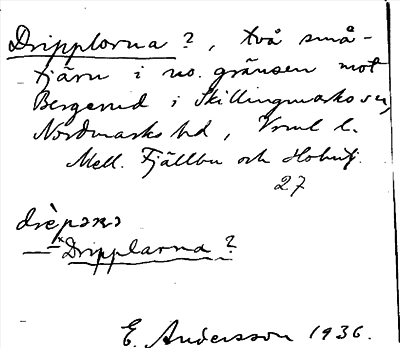 Dripplorna?, två små-
tjärn i no. gränsen mot
Bergerud i Skillingmarks sn,
Nordmarks hd, Vrml l.
Mell. Fjällbu och
27
drèpəɴə
—"— Dripplarna?
E. Andersson 1936.